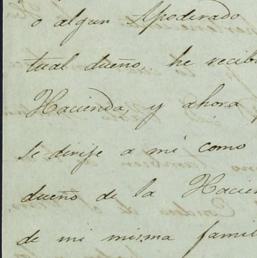 ó algun Apoderado
tual dueño, he recib
Hacienda y ahora
se dirije a mi como
dueño de la Hacien
de mi misma famil